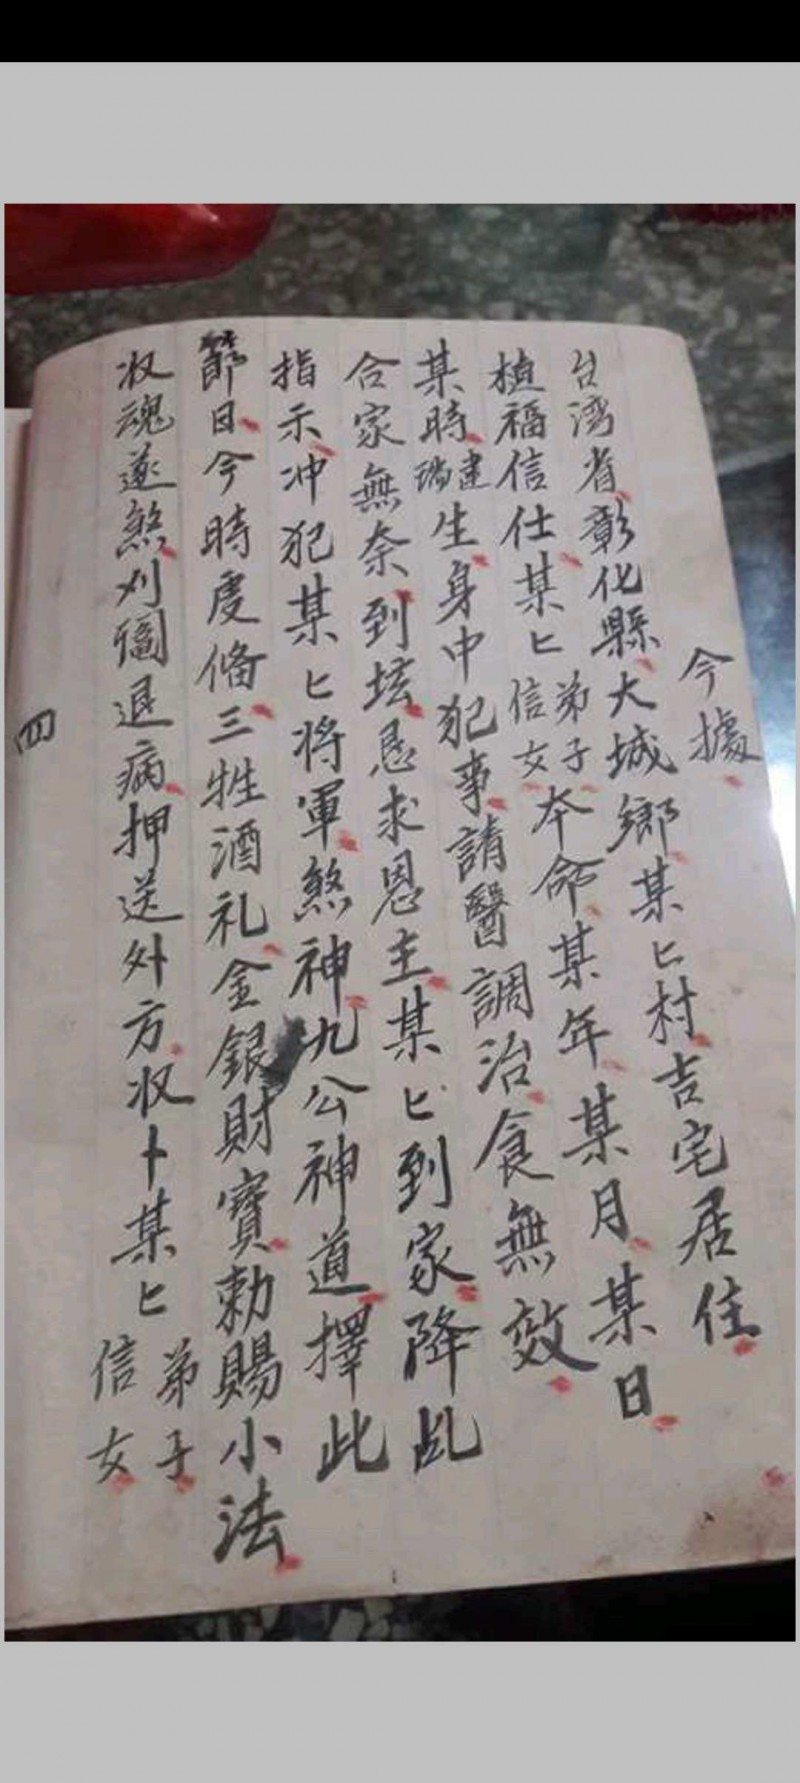 今據
台湾省彰化縣大城鄉某匕村吉宅居住
植福信仕某匕弟子信女本命某年某月某日
某時建瑞生身中犯事請醫調治食無效
合家無奈到坛恳求恩主某匕到家降乩
指示冲犯某匕将軍煞神九公神道擇此
節日今時虔俻三牲酒礼金銀財寶勅賜小法
收魂逐煞刈𨷺退病押送外方收卜某匕弟子信女
四